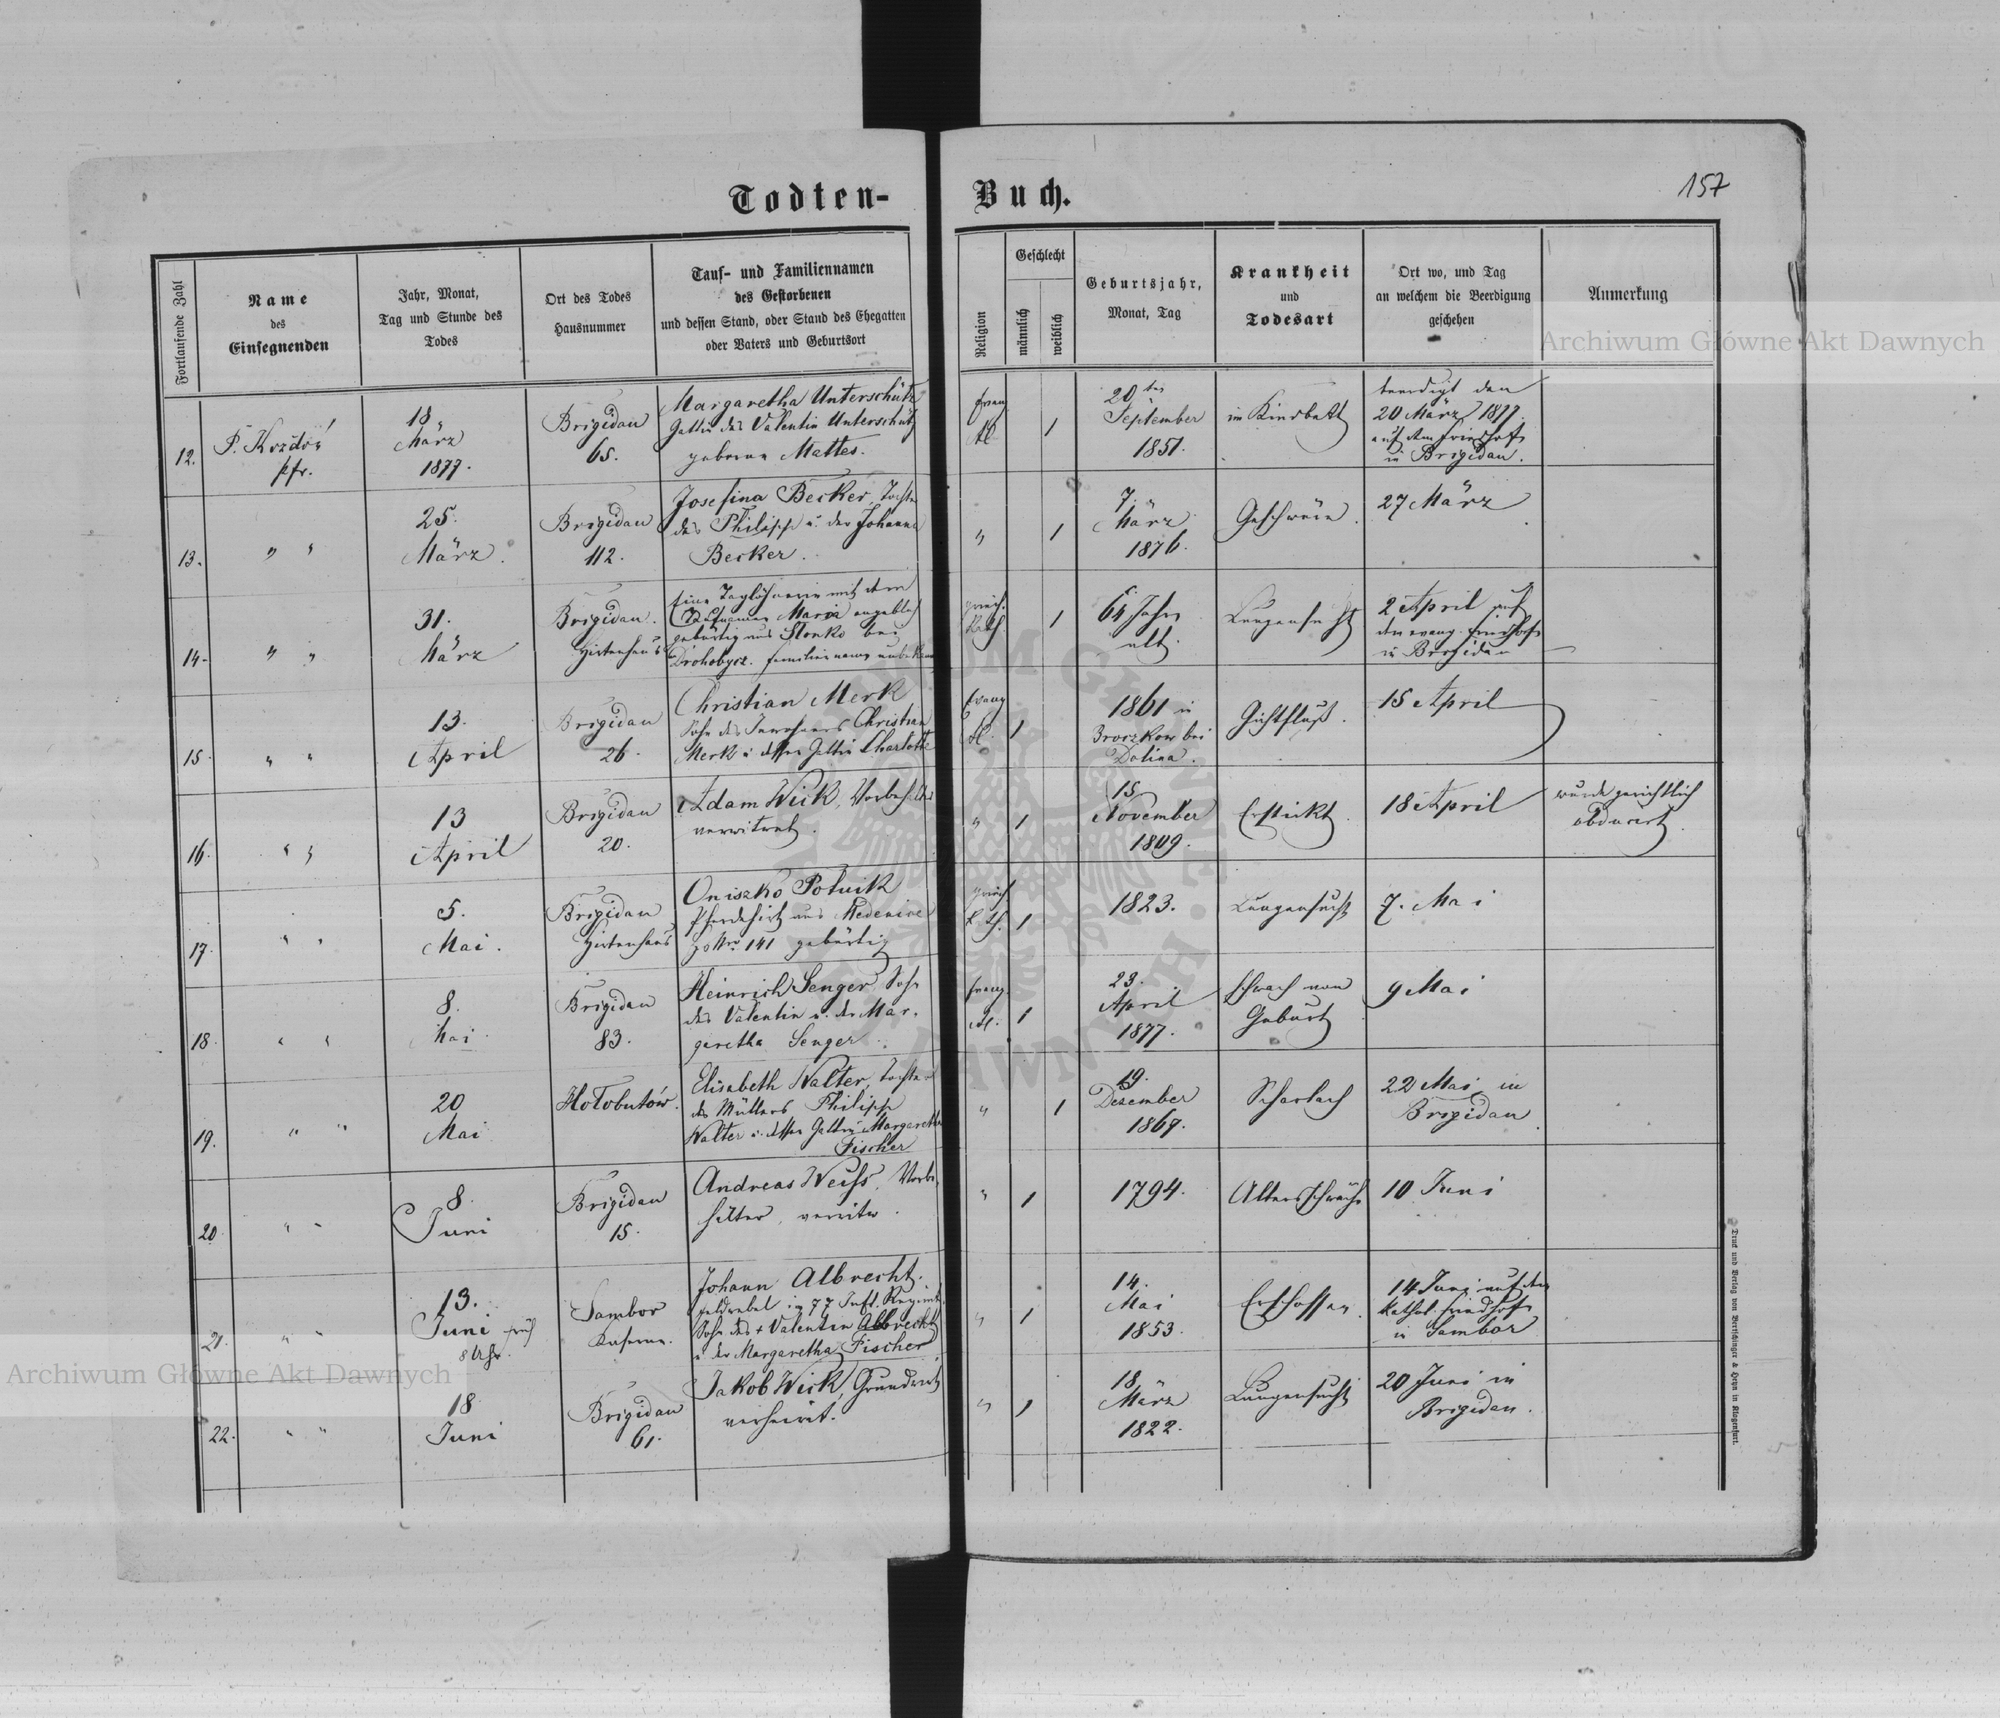 157
Todten-Buch.
Fortlaufende Zahl
Name
des
Einsegnenden
Jahr, Monat,
Tag und Stunde des
Todes
Ort des Todes
Hausnummer
Tauf- und Familiennamen
des Gestorbenen
und dessen Stand, oder Stand des Ehegatten
oder Vaters und Geburtsort
Religion
Geschlecht
männlich
weiblich
Geburtsjahr,
Monat, Tag
Krankheit
und
Todesart
Ort wo, und Tag
an welchem die Beerdigung
geschehen
Anmerkung
Archiwum Główne Akt Dawnych
12.
P. Kozdoń
pfr.
18
März
1877.
Brigidau
65.
Margaretha Unterschütz
Gattin des Valentin Unterschütz
geborne Mattes.
Evang
AC
1
20tes
September
1851.
im Kindbett
beerdigt den
20 März 1877.
auf dem Friedhofe
in Brigidau.
13.
" "
25.
März.
Brigidau
112.
Josefina Becker, Tochter
des Philipp u. der Johanna
Becker.
"
1
7.
März
1876.
Geschwüre.
27 März
14.
" "
31.
März
Brigidau.
Hirtenhaus
Eine Taglöhnerin mit dem
Taufnamen Maria angeblich
gebürtig aus Slonko bei
Drohobycz. Familienname unbekannt
griech.
Kath.
1
64 Jahre
alt.
Lungensucht
2 April auf
dem evang. Friedhofe
in Brigidau
15.
" "
13.
April
Brigidau
26.
Christian Merk
Sohn des Inwohners Christian
Merk u. dessen Gattin Charlotte
Evang
AC.
1
1861 in
Broczkow bei
Dolina.
Gichtfluß.
15 April
16.
" "
13
April
Brigidau
20.
Adam Wick, Vorbehälter
verwitwet.
"
1
15.
November
1809.
Erstickt.
18 April
wurde gerichtlich
obducirt.
17.
" "
5.
Mai.
Brigidau
Hirtenhaus
Oniszko Potuik
Pferdehirt aus Medenice
HsNro 141 gebürtig
griech
Kath.
1
1823.
Lungensucht
7. Mai
18.
" "
8.
Mai
Brigidau
83.
Heinrich Senger Sohn
des Valentin u. der Mar-
garetha Senger.
Evang.
AC.
1
23.
April
1877.
schwach von
Geburt
9 Mai
19.
" "
20
Mai
Hołobutów.
Elisabeth Walter, Tochter
des Müllers Philipp
Walter u. dessen Gattin Margaretha
Fischer
"
1
19.
Dezember
1869.
Scharlach
22 Mai in
Brigidau.
20
" "
8.
Juni
Brigidau
15.
Andreas Weiss, Vorbe-
hälter, verwitw.
"
1
1794.
Altersschwäche
10 Juni
21.
" "
13.
Juni früh
8 Uhr.
Sambor
Kaserne.
Johann Albrecht.
Feldwebel im 77 Inft. Regimt.
Sohn des + Valentin Albrecht
u. der Margaretha Fischer
"
1
14.
Mai
1853.
Erschossen.
14 Juni auf dem
Kathol. Friedhofe
in Sambor
22.
" "
18
Juni
Brigidau
61.
Jakob Wick, Grundwirt
verheirat.
"
1
18
März
1822.
Lungensucht
20 Juni in
Brigidau.
Druck und Verlag von Bertschinger & Heyn in Klagenfurt.
Archiwum Główne Akt Dawnych